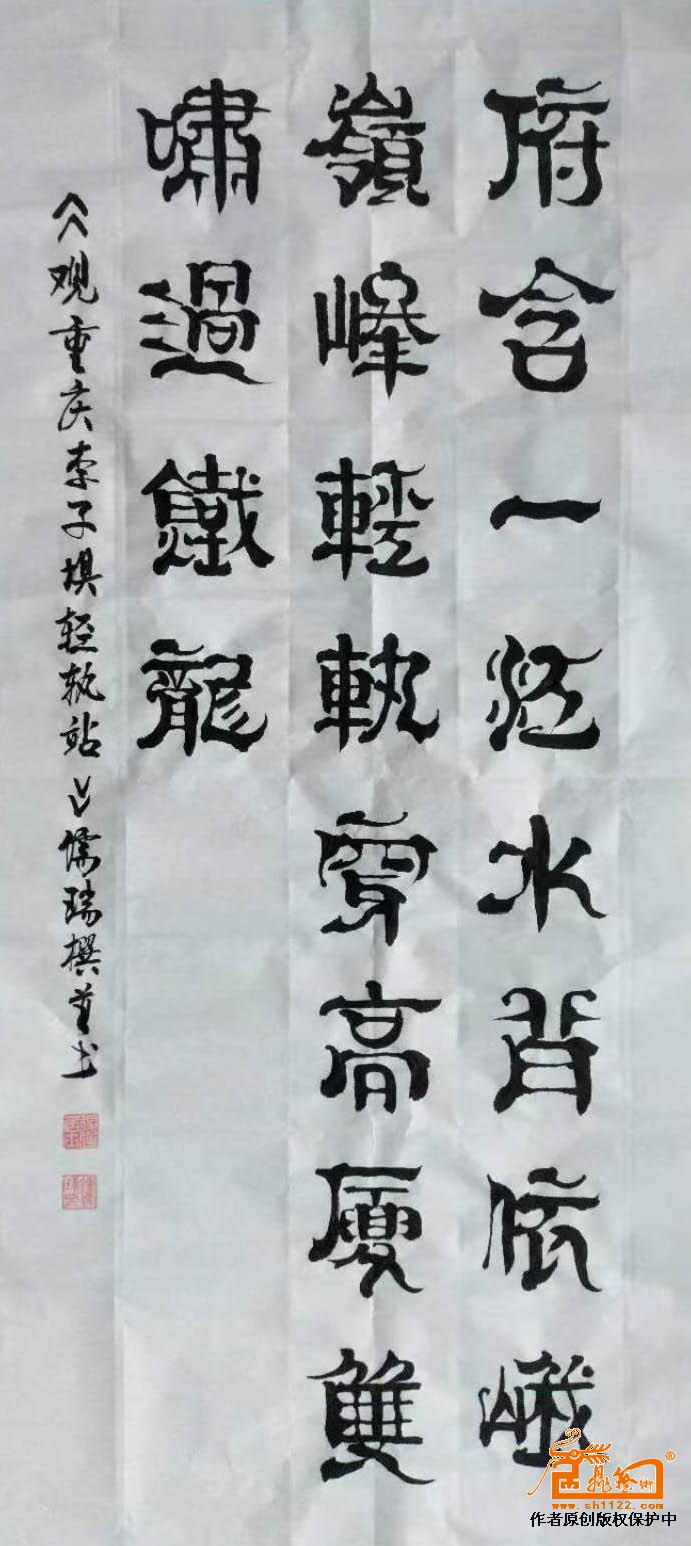 府含一江水背依峨
嶺峰輕軌穿高厦雙
嘯過鐵龍
《观重庆李子坝轻轨站》儒瑞撰并书
www.sh1122.com
作者原创版权保护中